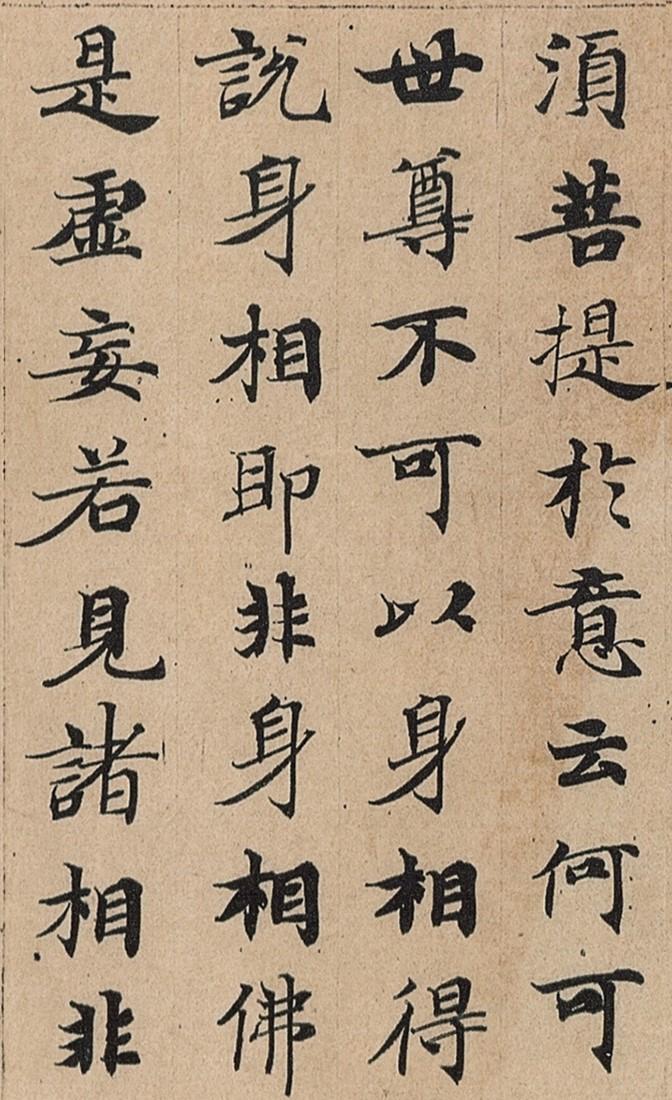 須菩提於意云何可
世尊不可以身相得
說身相即非身相佛
是虛妄若見諸相非